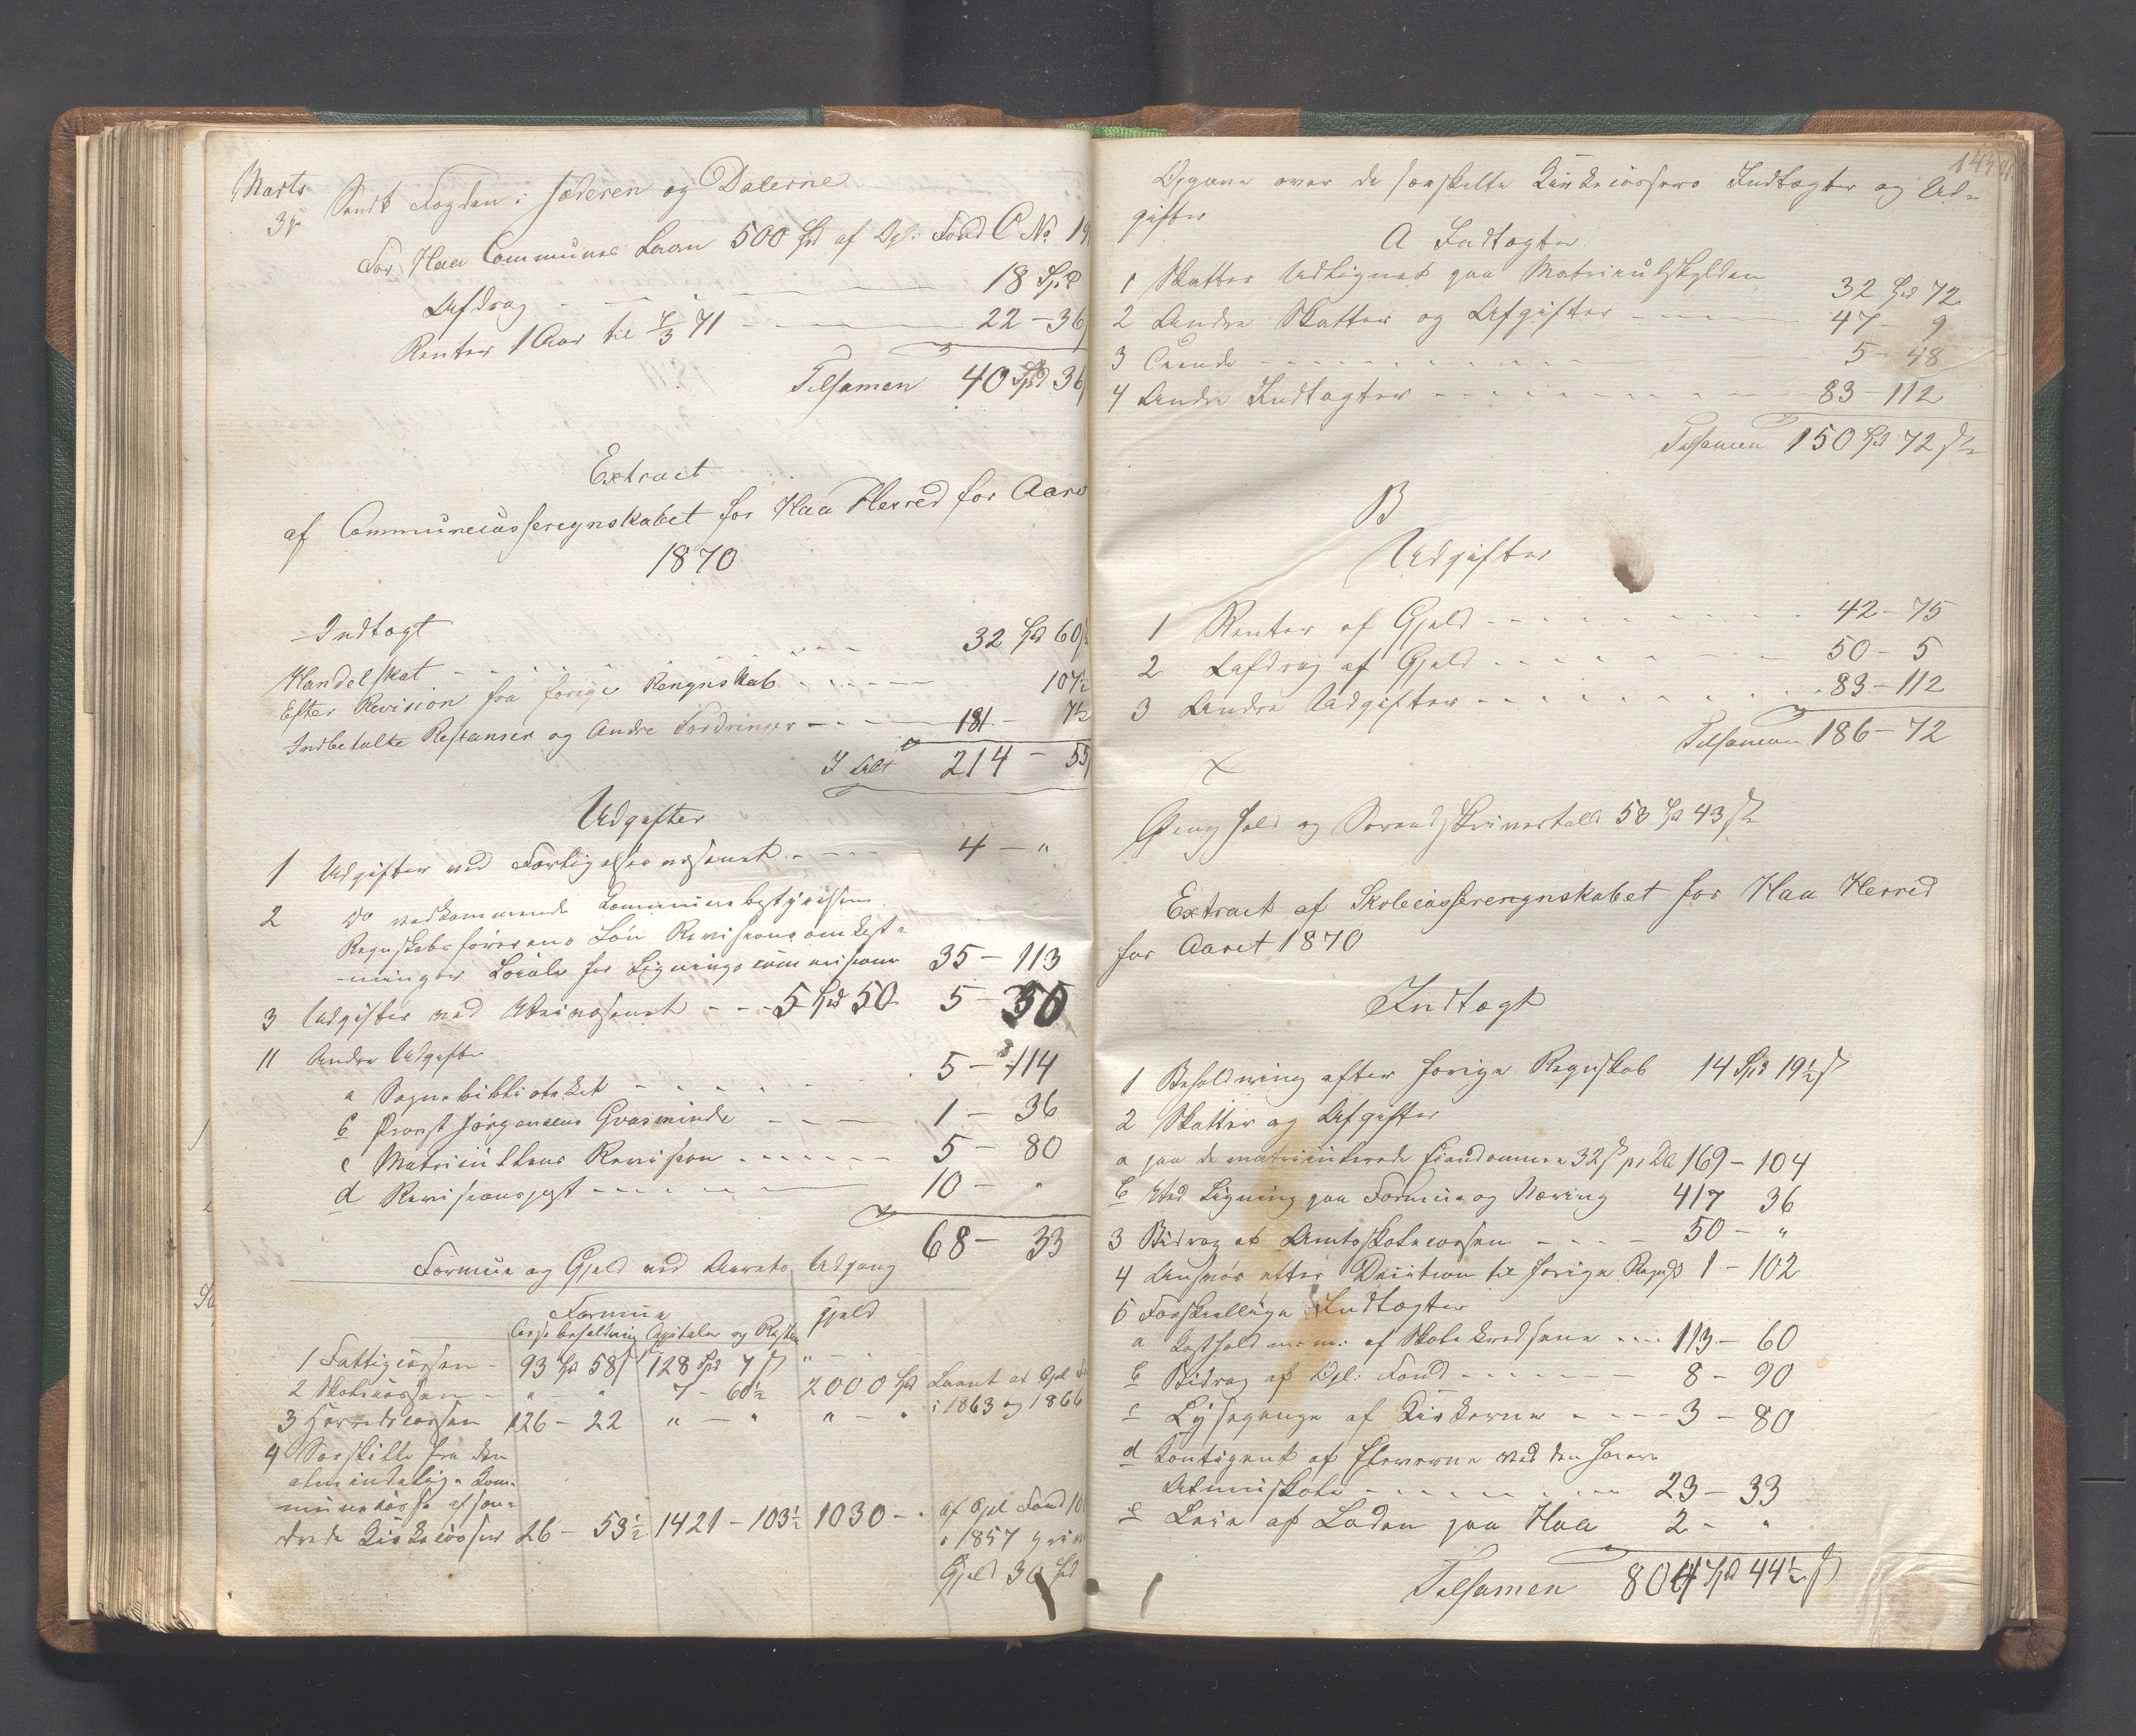 Marts
3
Sendt Fogden i Jæderen og Dalerne
For Haa Communes Laan 500 Spd af Opl: Fond C No 19
Afdrag 18 Spd
Renter 1 Aar til 4/3 71 22 - 36
Tilsamen 40 Spd 36
Extract
af Communecasseregnskabet for Haa Herred for Aaret
1870
Indtægt
Handelskat 32 Spd 60
Efter Revision fra forige Rengnskab 107½
Indbetalte Restanser og Andre Fordringer 181 - 7½
I Alt 214 - 55
Udgifter
1 Udgifter ved Forligelsesvæsenet 4 - "
2 do vedkommende Communebestyrelsen
Regnskabsførerens Løn Revisions omkost-
-ninger Locale for Ligningscommissionen 35 - 113
3 Udgifter ved Veivæsenet 5 Spd 50 5 - 50
11 Andre Udgifter
a Sognebiblioteket 5 - 114
b Provst Jørgensens Gravminde 1 - 36
c Matriculens Revision 5 - 80
d Revisionspost 10 - "
68 - 33
Formue og Gjeld ved Aarets Udgang
Formue Gjeld
Cassebeholdning Capitaler og Restan
1 Fattigcassen 93 Spd 58 128 Spd 7 "
2 Skolecassen " - " 7 - 60½ 2000 Spd Laant af Opl
i 1863 og 1866
3 Herredscassen 126 - 22 " - " " - "
4 Særskilte fra den
almindelige Com-
munecasse afson-
drede Kirkecasser 26 - 53½ 1421 - 103½ 1030 - " af Opl Fond
i 1857
Gjeld 30 Spd
Opgave over de særskilte Kirkecassers Indtægter og Ud-
gifter
A Indtægter
1 Skatter Udlignet paa Matriculskylden 32 Spd 72
2 Andre Skatter og Afgifter 47 - 9
3 Tiende 5 - 48
4 Andre Indtægter 83 - 112
Tilsamen 150 Spd 72
B
Udgifter
1 Renter af Gjeld 42 - 75
2 Afdrag af Gjeld 50 - 5
3 Andre Udgifter 83 - 112
Tilsamen 186 - 72
x
og Sorendskrivertold 53 Spd 43
Extract af Skolecasserengnskabet for Haa Herred
for Aaret 1870
Indtægt
1 Beholdning efter forige Regnskab 14 Spd 19½
2 Skatter og Afgifter
a paa de matriculerede Eiendomme 32 pr Dlr 169 - 104
b Ved Ligning paa Formue og Næring 417 36
3 Bidrag af Amtsskolecassen 50 - "
4 Ansvar efter Decision til forige Regnsk 1 - 102
5 Forskjellige Indtægter
a Kosthold m: m: af Skolekredsene 113 - 60
b Bidrag af Opl: Fond 8 - 90
c Lysepenge af Kirkerne 3 - 80
d Contigent af Eleverne ved den høiere
Almuskole 23 - 33
e Leie af Laden paa Haa 2 - "
Tilsamen 804 Spd 44½